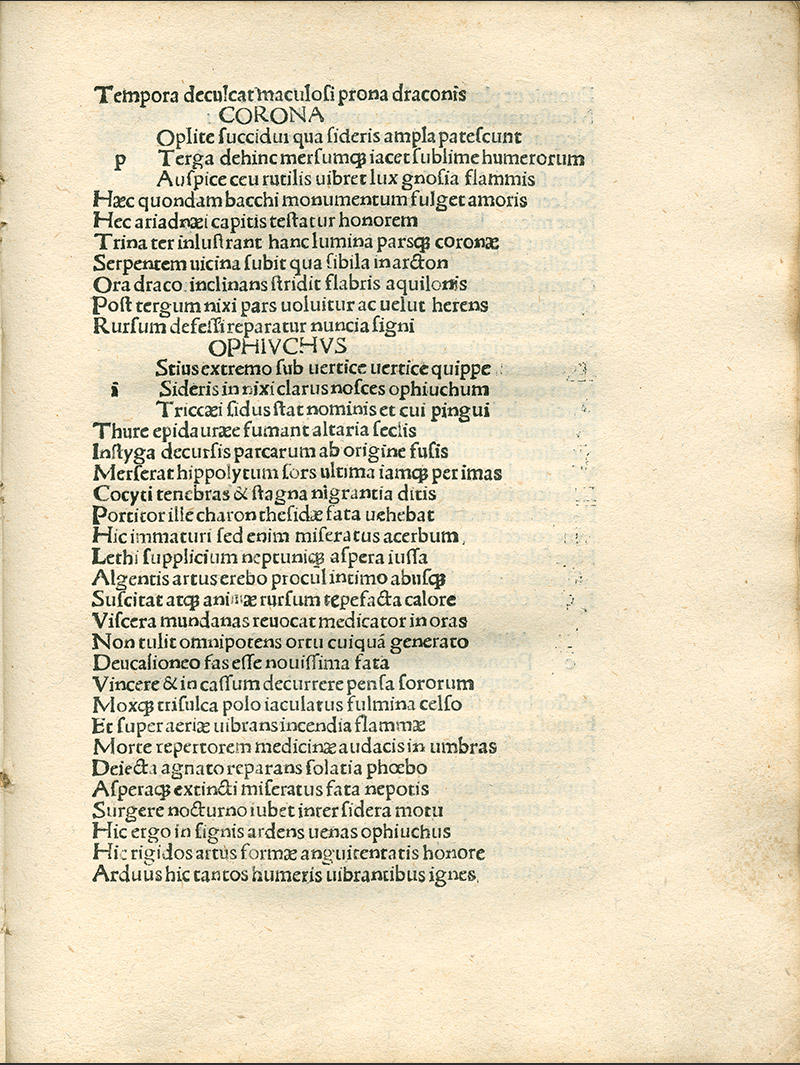 Tempora deculcat maculoſi prona draconis
CORONA
Oplite ſuccidui qua ſideris ampla pateſcunt
p Terga dehinc merſumqꝫ iacet ſublime humerorum
Auſpice ceu rutilis uibret lux gnoſia flammis
Hæc quondam bacchi monumentum fulget amoris
Hec ariadnæi capitis teſtatur honorem
Trina ter inluſtrant hanc lumina parsqꝫ coronæ
Serpentem uicina ſubit qua ſibila in arcton
Ora draco inclinans ſtridit flabris aquilonis
Poſt tergum nixi pars uoluitur ac uelut herens
Rurſum defeſſi reparatur nuncia ſigni
OPHIVCHVS
Stius extremo ſub uertice uertice quippe
ī Sideris in nixi clarus noſces ophiuchum
Triccæi ſidus ſtat nominis et cui pingui
Thure epidauræe fumant altaria ſeclis
In ſtyga decurſis parcarum ab origine fuſis
Merſerat hippolytum ſors ultima iamqꝫ per imas
Cocyti tenebras & ſtagna nigrantia ditis
Portitor ille charon theſidæ fata uehebat
Hic immaturi ſed enim miſeratus acerbum
Lethi ſupplicium neptuniqꝫ aſpera iuſſa
Algentis artus erebo procul intimo abuſqꝫ
Suſcitat atqꝫ animæ rurſum tepefacta calore
Viſcera mundanas reuocat medicator in oras
Non tulit omnipotens ortu cuiquā generato
Deucalioneo fas eſſe nouiſſima fata
Vincere & in caſſum decurrere penſa ſororum
Moxqꝫ triſulca polo iaculatus fulmina celſo
Et ſuper aeriæ uibrans incendia flammæ
Morte repertorem medicinæ audacis in umbras
Deiecta agnato reparans ſolatia phœbo
Aſperaqꝫ extincti miſeratus fata nepotis
Surgere nocturno iubet inter ſidera motu
Hic ergo in ſignis ardens uenas ophiuchus
Hic rigidos artus formæ anguitentatis honore
Arduus hic tantos humeris uibrantibus ignes